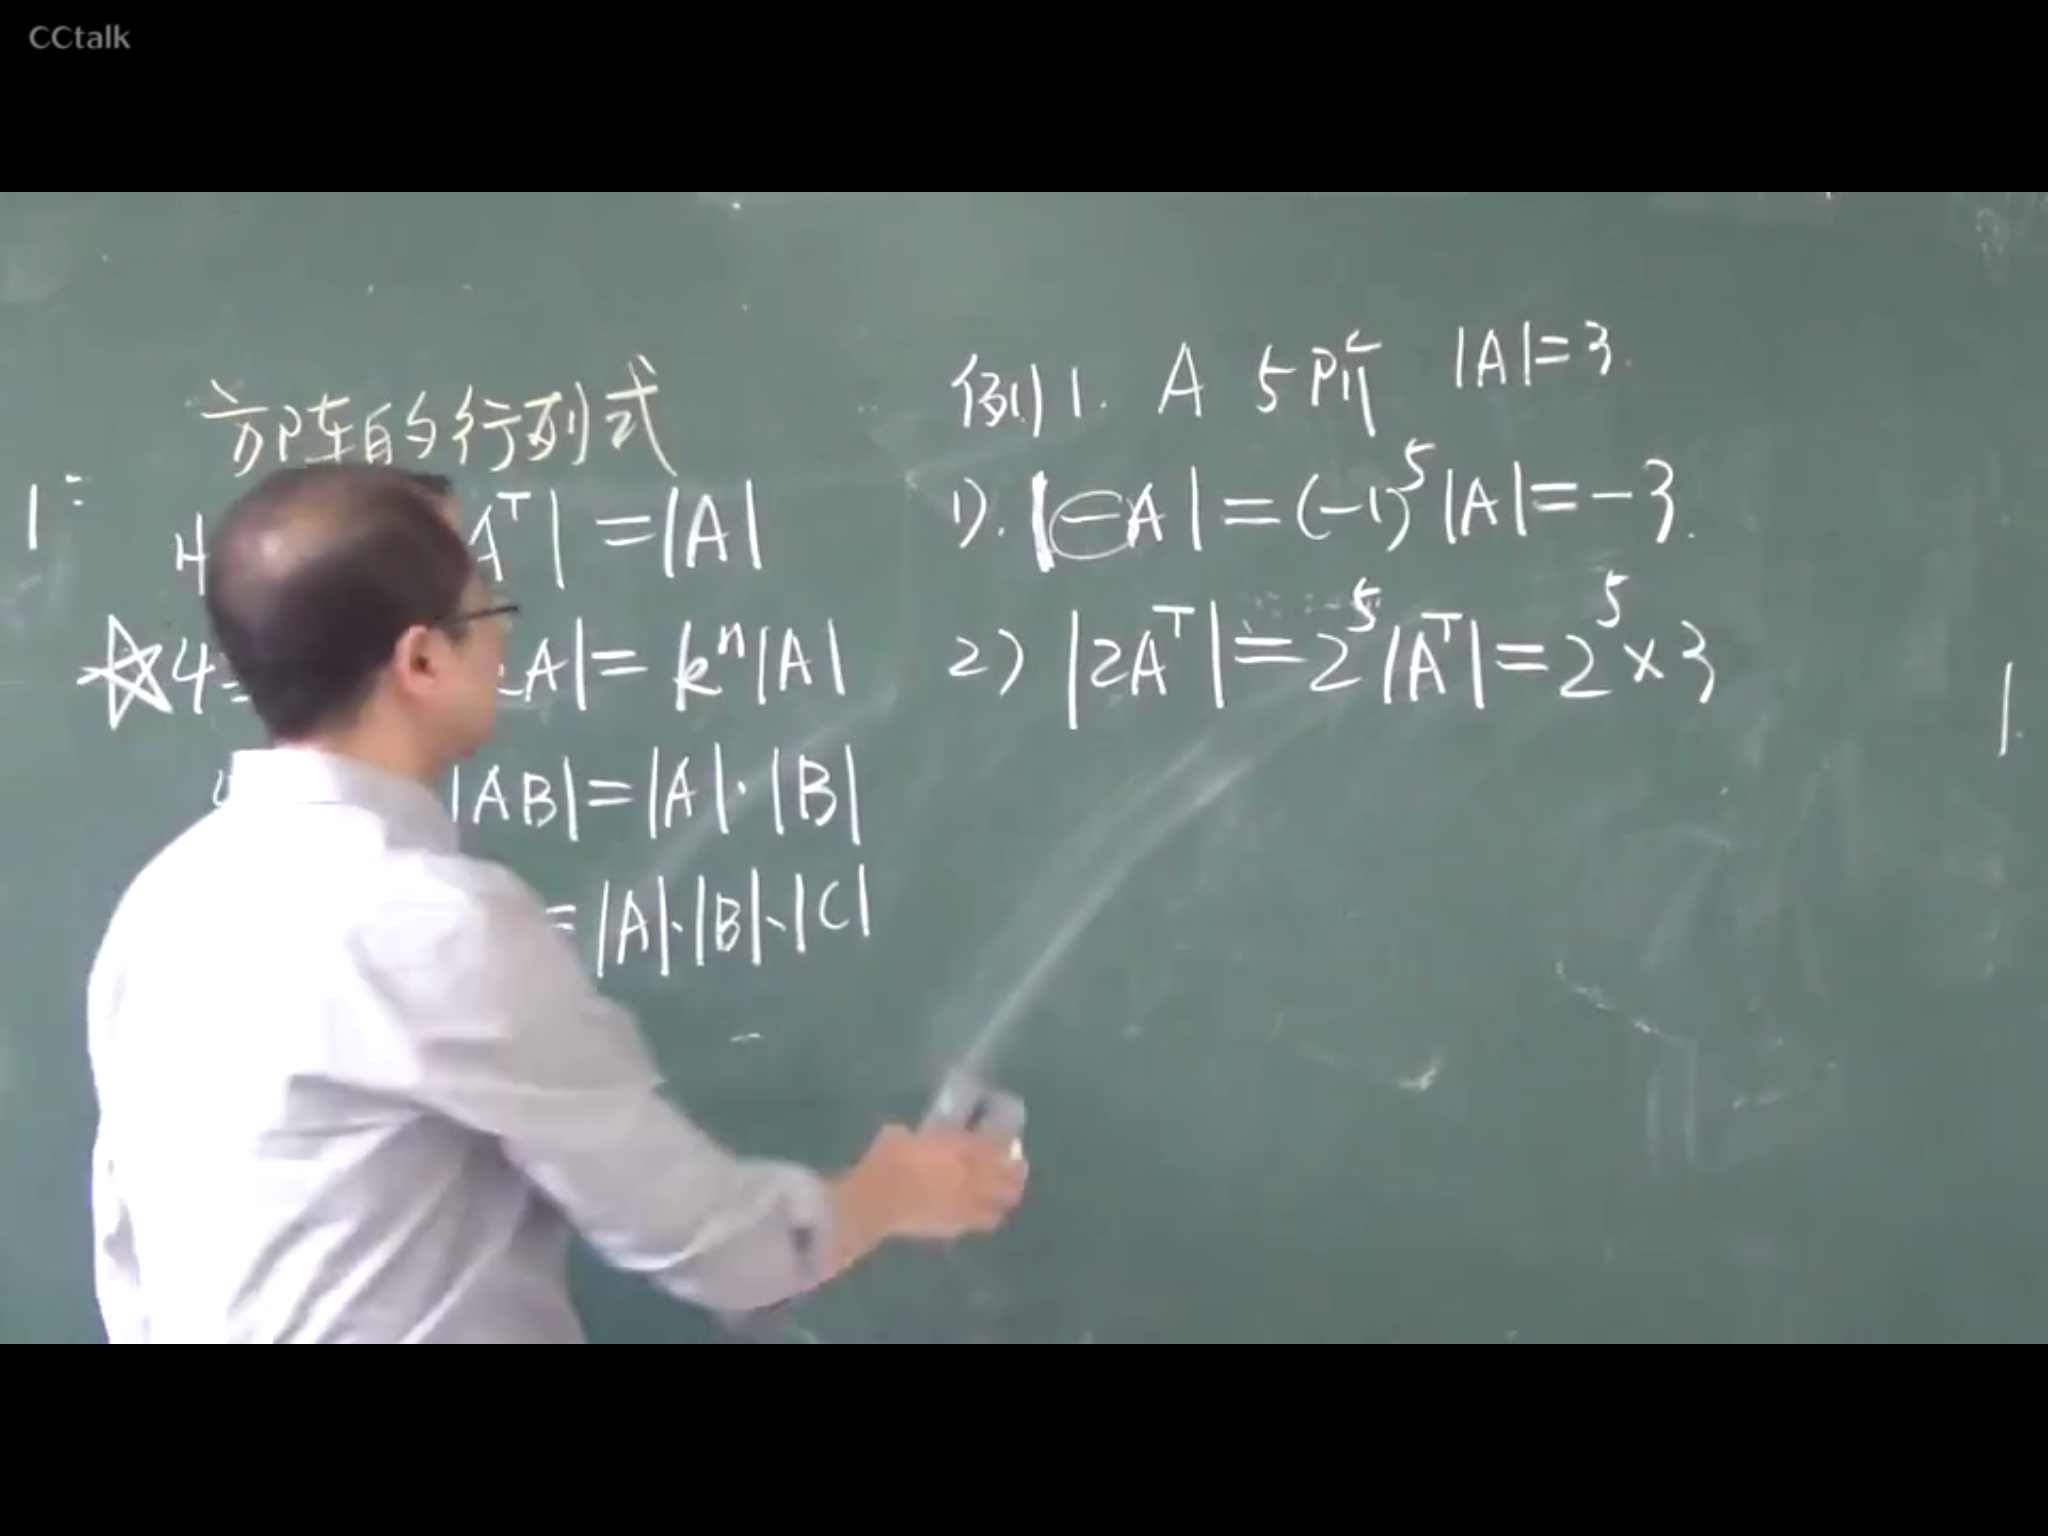 CCtalk
方阵的行列式
Aᵀ| = |A|
A| = kⁿ|A|
|AB| = |A|·|B|
= |A|·|B|·|C|
例1. A 5阶 |A|=3.
1). |-A| = (-1)⁵|A| = -3.
2) |2Aᵀ| = 2⁵|Aᵀ| = 2⁵×3